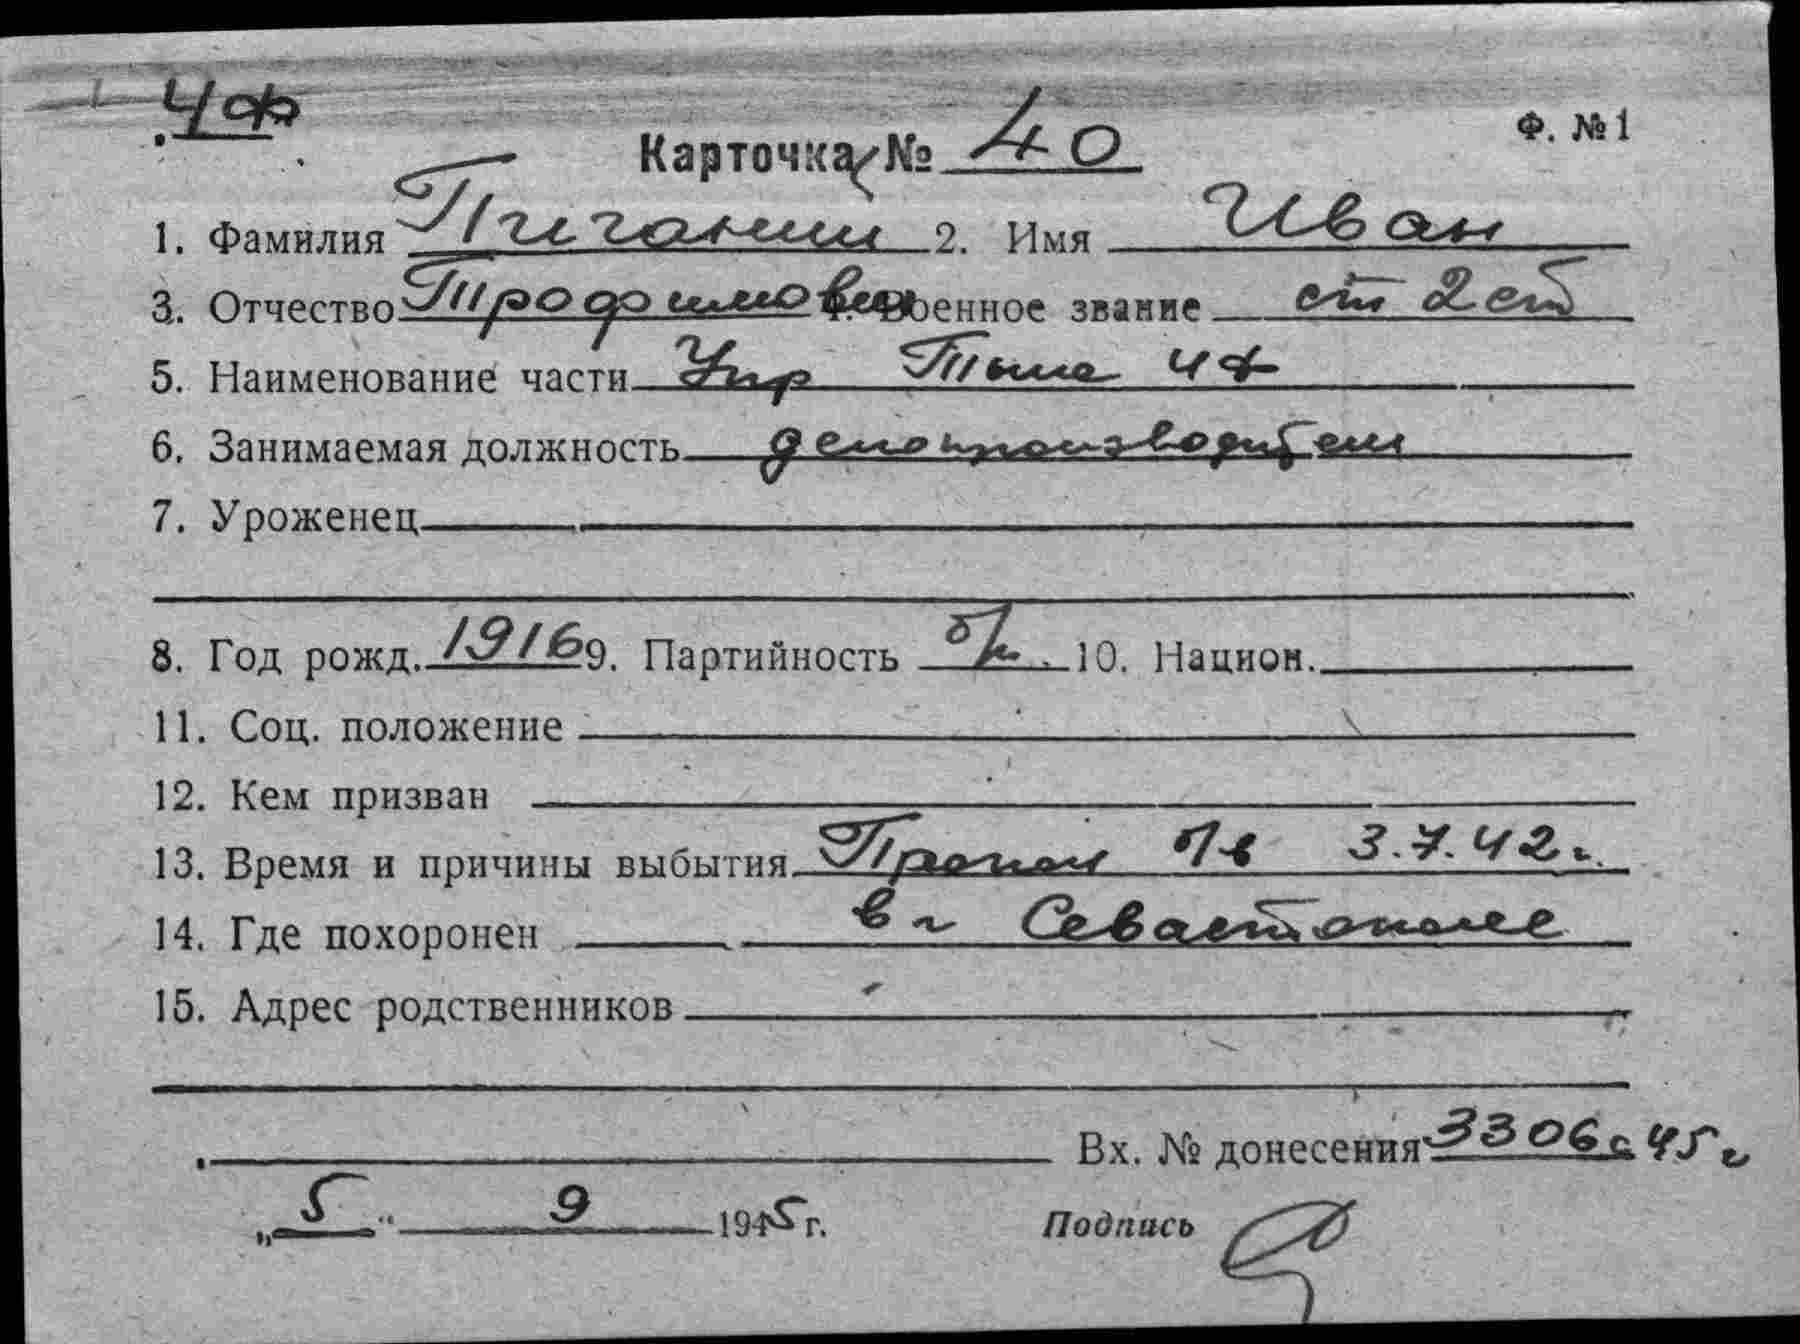 ЧФ
Ф. № 1
Карточка № 40
1. Фамилия Пиганин 2. Имя Иван
3. Отчество Трофимович 4. Военное звание ст 2 ст
5. Наименование части Упр Тыла ЧФ
6. Занимаемая должность делопроизводитель
7. Уроженец
8. Год рожд. 1916 9. Партийность б/п 10. Национ.
11. Соц. положение
12. Кем призван
13. Время и причины выбытия Пропал б/в 3.7.42 г.
14. Где похоронен в г Севастополе
15. Адрес родственников
Вх. № донесения 3306с 45 г
„5“ 9 1945 г. Подпись